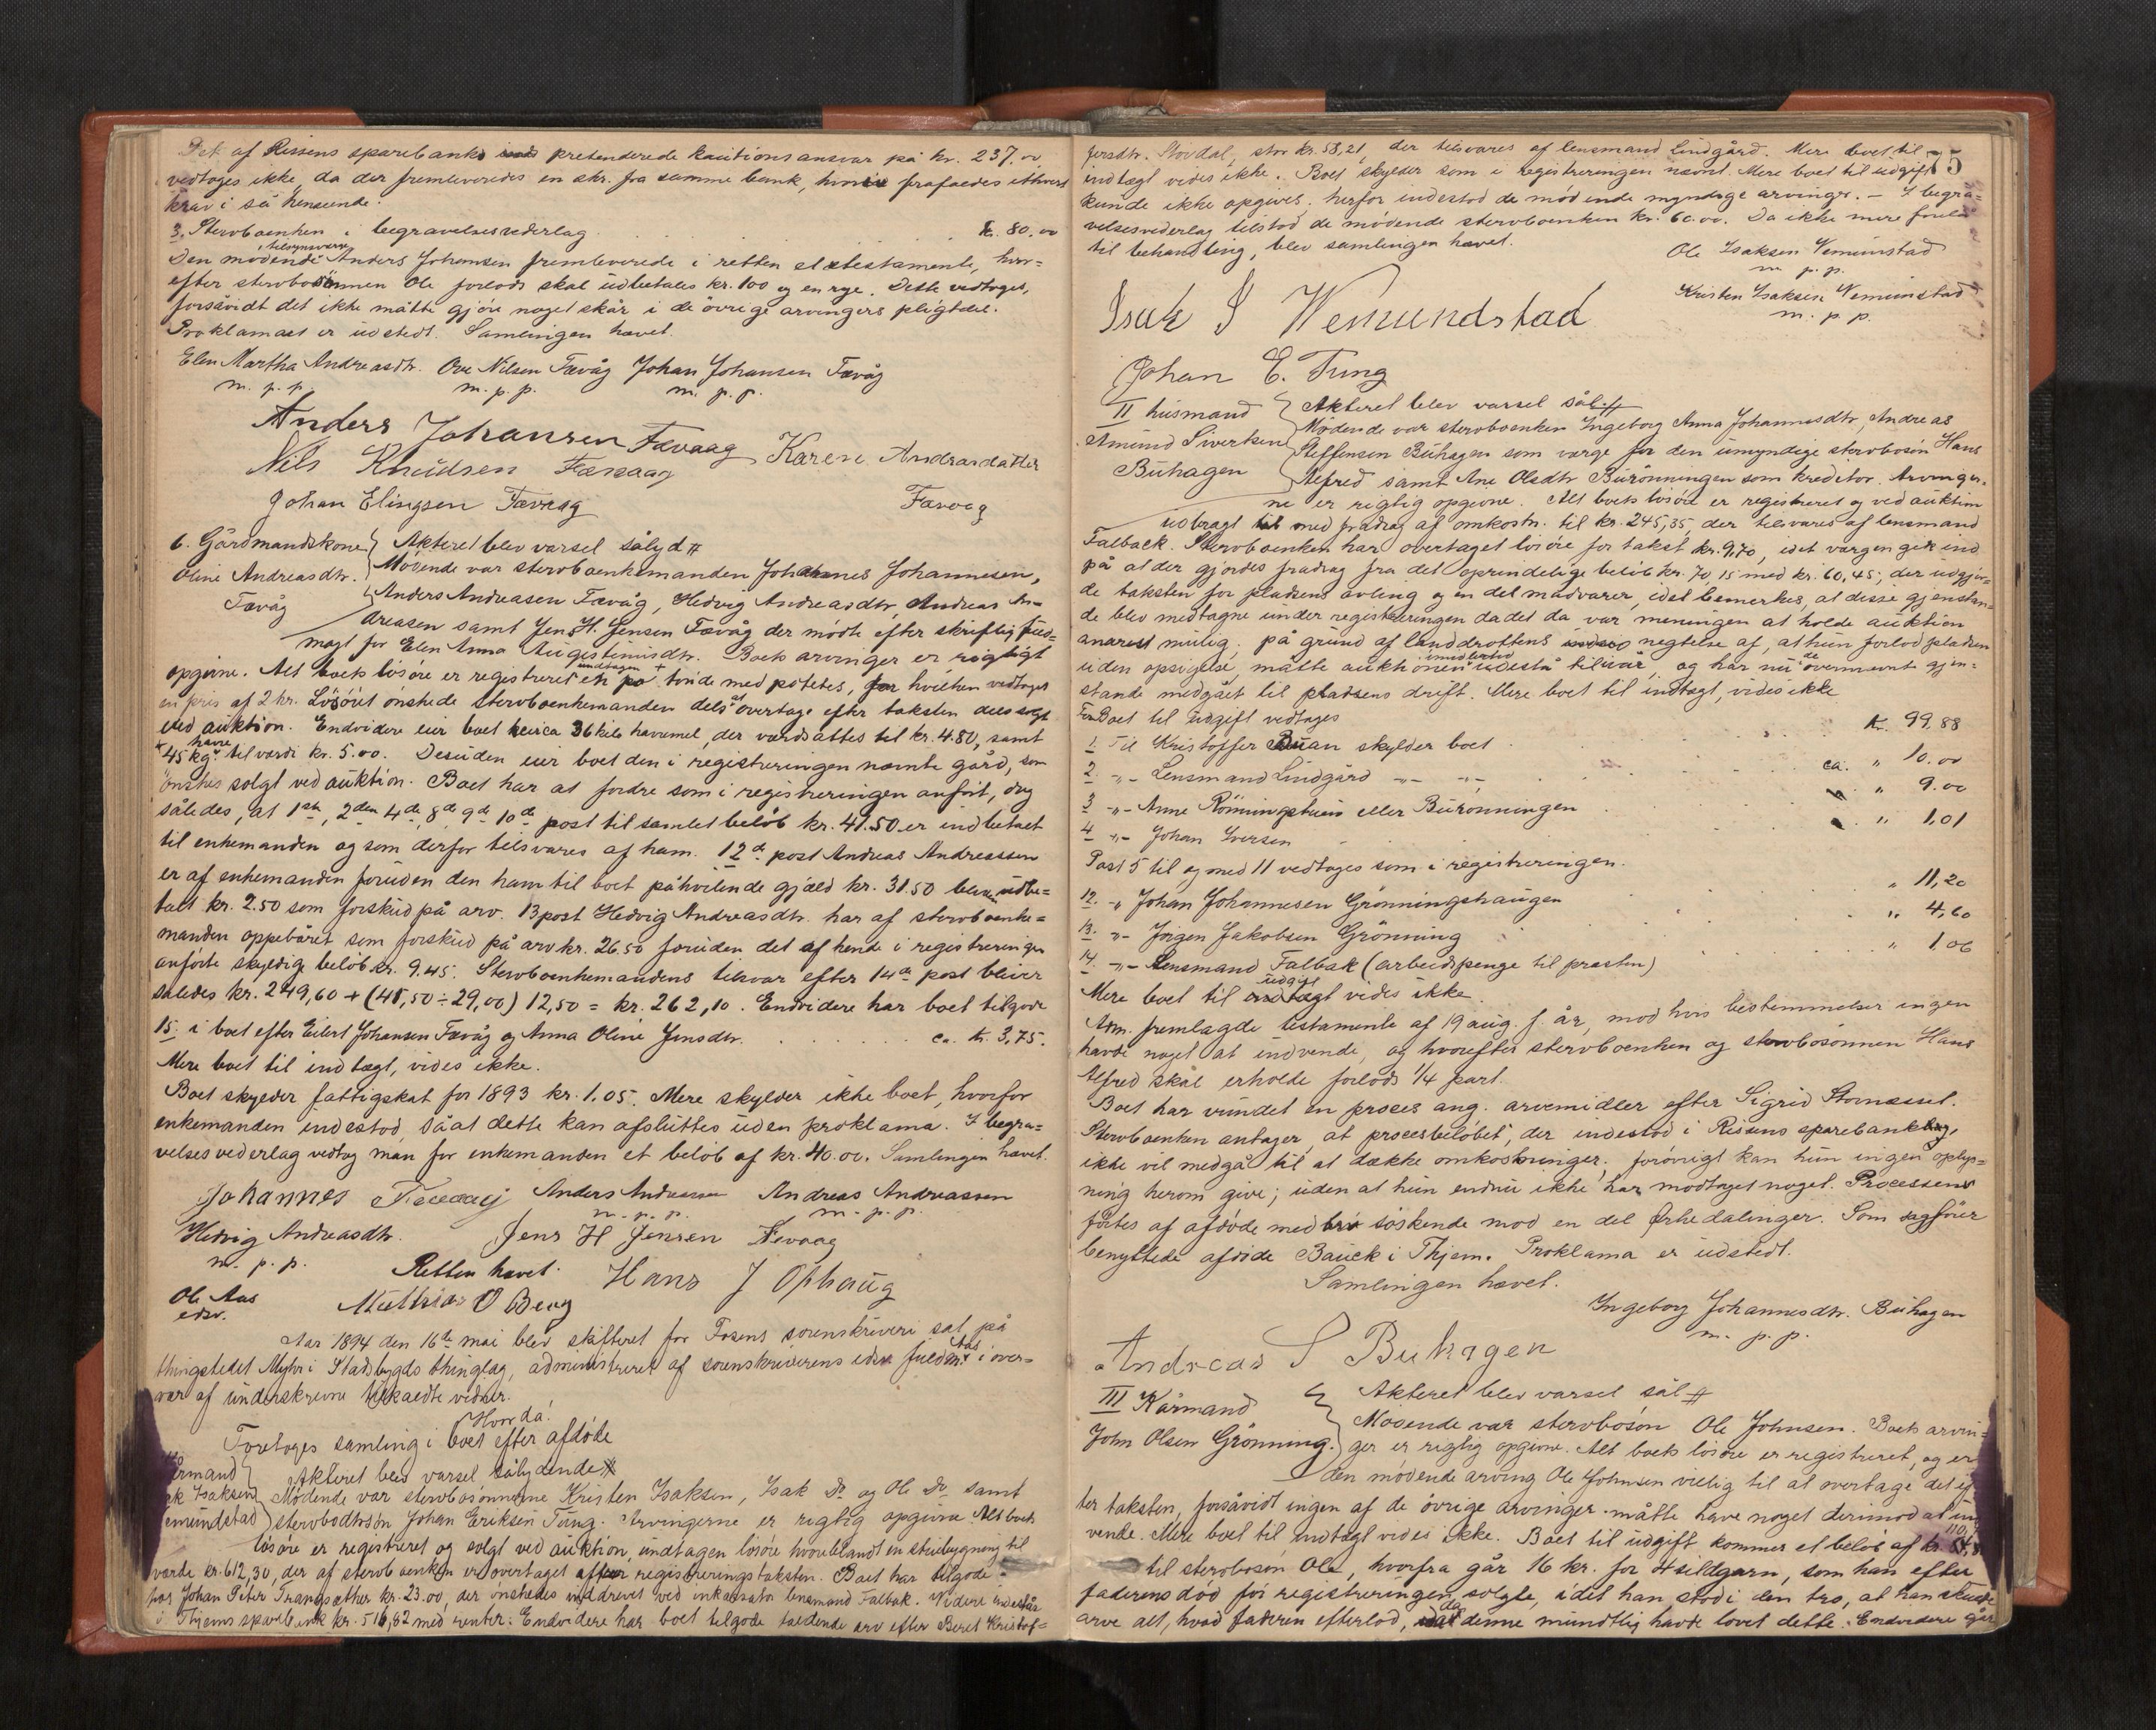 Det af Rissens sparebank pretenderede kautionsansvar på kr. 237.00
vedtages ikke, da der fremleveredes en skr. fra samme bank, hvori frafaldes ethvert
krav i så henseende.
3. Stervboenken i begravelsesvederlag . . . . kr. 80.00
Den mødende tilsynsværge Anders Johansen fremleverede i retten et testamente, hvor=
efter stervbosønnen Ole forlods skal udbetales kr. 100 og en rye. Dette vedtoges,
forsåvidt det ikke måtte gjøre noget skår i de øvrige arvingers pligtdel.
Proklamaet er udstedt. Samlingen hævet.
Elen Martha Andreasdtr. Ove Nilsen Fævåg Johan Johansen Fævåg
m. p. p. m. p. p. m. p. p.
Anders Johansen Fævaag Karen Andreasdatter
Nils Knudsen Fævaag
Johan Elingsen Fævaag Fævaag
6. Gårdmandskone Akteret blev varsel sålyd #
Oline Andreasdtr. Mødende var stervboenkemanden Johannes Johannesen,
Fævåg Anders Andreasen Fævåg, Hedvig Andreasdtr, Andreas An-
dreasen samt Jens H. Jensen Fævåg der mødte efter skriftlig fuld-
magt for Elen Anna Augustinusdtr. Boets arvinger er rigtigt
opgivne. Alt boets løsøre er registreret undtagen en tønde med potetes, for hvilken vedtoges
en pris af 2 kr. Løsøret ønskede stervboenkemanden dels at overtage efter taksten dels solgt
ved auktion. Endvidere eier boet circa 36 kilo havremel, der værdsattes til kr. 4.80, samt
45 kg. havre til værdi kr. 5.00. Desuden eier boet den i registreringen nævnte gård, som
ønskes solgt ved auktion. Boet har at fordre som i registreringen anført, dog
således, at 1ste, 2den 4de, 8de 9de 10de post til samlet beløb kr. 41.50 er indbetalt
til enkemanden og som derfor tilsvares af ham. 12te post Andreas Andreassen
er af enkemanden foruden den ham til boet påhvilende gjæld kr. 31.50 bleven udbe=
talt kr. 2.50 som forskud på arv. 13 post Hedvig Andreasdtr. har af stervboenke=
manden oppebåret som forskud på arv kr. 26.50 foruden det af hende i registreringen
anførte skyldige beløb kr. 9.45. Stervboenkemandens tilsvar efter 14de post bliver
således kr. 249,60 + (41,50 ÷ 29,00) 12,50 = kr. 262,10. Endvidere har boet tilgode
15. i boet efter Eilert Johansen Fævåg og Anna Oline Jensdtr. . . . ca. kr. 3,75.
Mere boet til indtægt, vides ikke.
Boet skylder fattigskat for 1893 kr. 1.05. Mere skylder ikke boet, hvorfor
enkemanden indestod, så at dette kan afsluttes uden proklama. I begra=
velsesvederlag vedtog man for enkemanden et beløb af kr. 40.00. Samlingen hævet.
Johannes Fævaag Anders Andreasen Andreas Andreassen
m. p. p. m. p. p.
Hedvig Andreasdtr. Jens H Jensen Fævaag
m. p. p. Retten hævet. Hans J Ophaug
Ole Aas Mathias O Berg
edsv.
Aar 1894 den 16de mai blev skifteret for Fosens sorenskriveri sat på
thingstedet Myhr i Stadsbygds thinglag, administreret af sorenskriverens edsv. fuldm. Aas i over-
vær af underskrevne tilkaldte vidner.
Hvorda:
Foretoges samling i boet efter afdøde
Akteret blev varsel sålydende #
Isaksen Mødende var stervbosønnerne Kristen Isaksen, Isak Do og Ole Do samt
stervbodtrsøn Johan Eriksen Tung. Arvingerne er rigtig opgivne. Alt boets
løsøre er registreret og solgt ved auktion, undtagen løsøre hvoriblandt en stuebygning til
værdi kr. 612,30, der af stervboenken er overtaget efter registreringstaksten. Boet har tilgode
hos Johan Peter Trangsæther kr. 23.00, der ønskedes inddrevet ved inkassator lensmand Falbak. Videre indestår
i Thjems sparebank kr. 516,82 med renter. Endvidere har boet tilgode faldende arv efter Beret Kristof=
75
fersdtr. Stordal, stor kr. 58,21, der tilsvares af lensmand Lindgård. Mere boet til
indtægt vides ikke. Boet skylder som i registreringen nævnt. Mere boet til udgift
kunde ikke opgives; herfor indestod de mødende myndige arvinger. — I begra=
velsesvederlag tilstod de mødende stervboenken kr. 60.00. Da ikke mere forelå
til behandling, blev samlingen hævet.
Ole Isaksen Vemunstad
m. p. p.
Kristen Isaksen Vemunstad
m. p. p.
Isak I Wemundstad
Johan E. Tung
II husmand Akteret blev varsel sål. #
Amund Sivertsen Mødende var stervboenken Ingeborg Anna Johannesdtr, Andreas
Buhagen Steffensen Buhagen som værge for den umyndige stervbosøn Hans
Alfred samt Ane Olsdtr Burønningen som kreditor. Arvinger-
ne er rigtig opgivne. Alt boets løsøre er registreret og ved auktion
udbragt med fradrag af omkostn. til kr. 245,35, der tilsvares af lensmand
Falback. Stervboenken har overtaget løsøre for takst kr. 9.70, idet værgen gik ind
på at der gjordes fradrag fra det oprindelige beløb kr. 70,15 med kr. 60,45, der udgjør-
de taksten for pladsens avling og en del madvarer, idet bemerkes, at disse gjenstan=
de blev medtagne under registreringen da det da var meningen at holde auktion
snarest mulig, på grund af landdrottens negtelse af, at hun forlod pladsen
uden opsigelse, måtte auktionen imidlertid udestå til vår, og har nu de ovennævnte gjen=
stande medgået til pladsens drift. Mere boet til indtægt, vides ikke
Boet til udgift vedtages
1. Til Kristoffer Buan skylder boet . . . kr. 99,88
2. -„- Lensmand Lindgård -„- -„- . . . ca. „ 10.00
3 -„- Anne Rønningstuen eller Burønningen . . . „ 9.00
4 -„- Johan Iversen . . . „ 1,01
Post 5 til og med 11 vedtages som i registreringen.
12. -„ Johan Johannesen Grønningshaugen . . . „ 11,20
13. „- Jørgen Jakobsen Grønning . . . „ 4,60
14. -„- Lensmand Falbak (arbeidspenge til præsten) . . . „ 1.06
Mere boet til udgift vides ikke.
Adm. fremlagde testamente af 19 aug. f. år, mod hvis bestemmelser ingen
havde noget at indvende, og hvorefter stervboenken og stervbosønnen Hans
Alfred skal erholde forlods 1/4 part.
Boet har vundet en proces ang. arvemidler efter Sigrid
Stervboenken antager at procesbeløbet, der indestod i Rissens sparebank,
ikke vil medgå til at dække omkostninger; forøvrigt kan hun ingen oplys=
ning herom give; uden at hun endnu ikke har modtaget noget. Processen
førtes af afdøde med søskende mod en del Ørkedalinger. Som sagfører
benyttede afdøde Bauck i Thjem. Proklama er udstedt.
Samlingen hævet.
Ingeborg Johannesdtr. Buhagen
m. p. p.
Andreas S Buhagen
III Kårmand Akteret blev varsel sål #
John Olsen Grønning. Mødende var stervbosøn Ole Johnsen. Boets arvin=
ger er rigtig opgivne. Alt boets løsøre er registreret, og er
den mødende arving Ole Johnsen villig til at overtage det ef
ter taksten, forsåvidt ingen af de øvrige arvinger måtte have noget derimod at ind
vende. Mere boet til indtægt vides ikke. Boet til udgift kommer et beløb af kr.
til stervbosøn Ole, hvorfra går 16 kr. for 4 sildgarn, som han efter
faderens død før registreringen solgte, idet han stod i den tro, at han skulde
arve alt, hvad faderen efterlod, da denne mundtlig havde lovet dette. Endvidere går